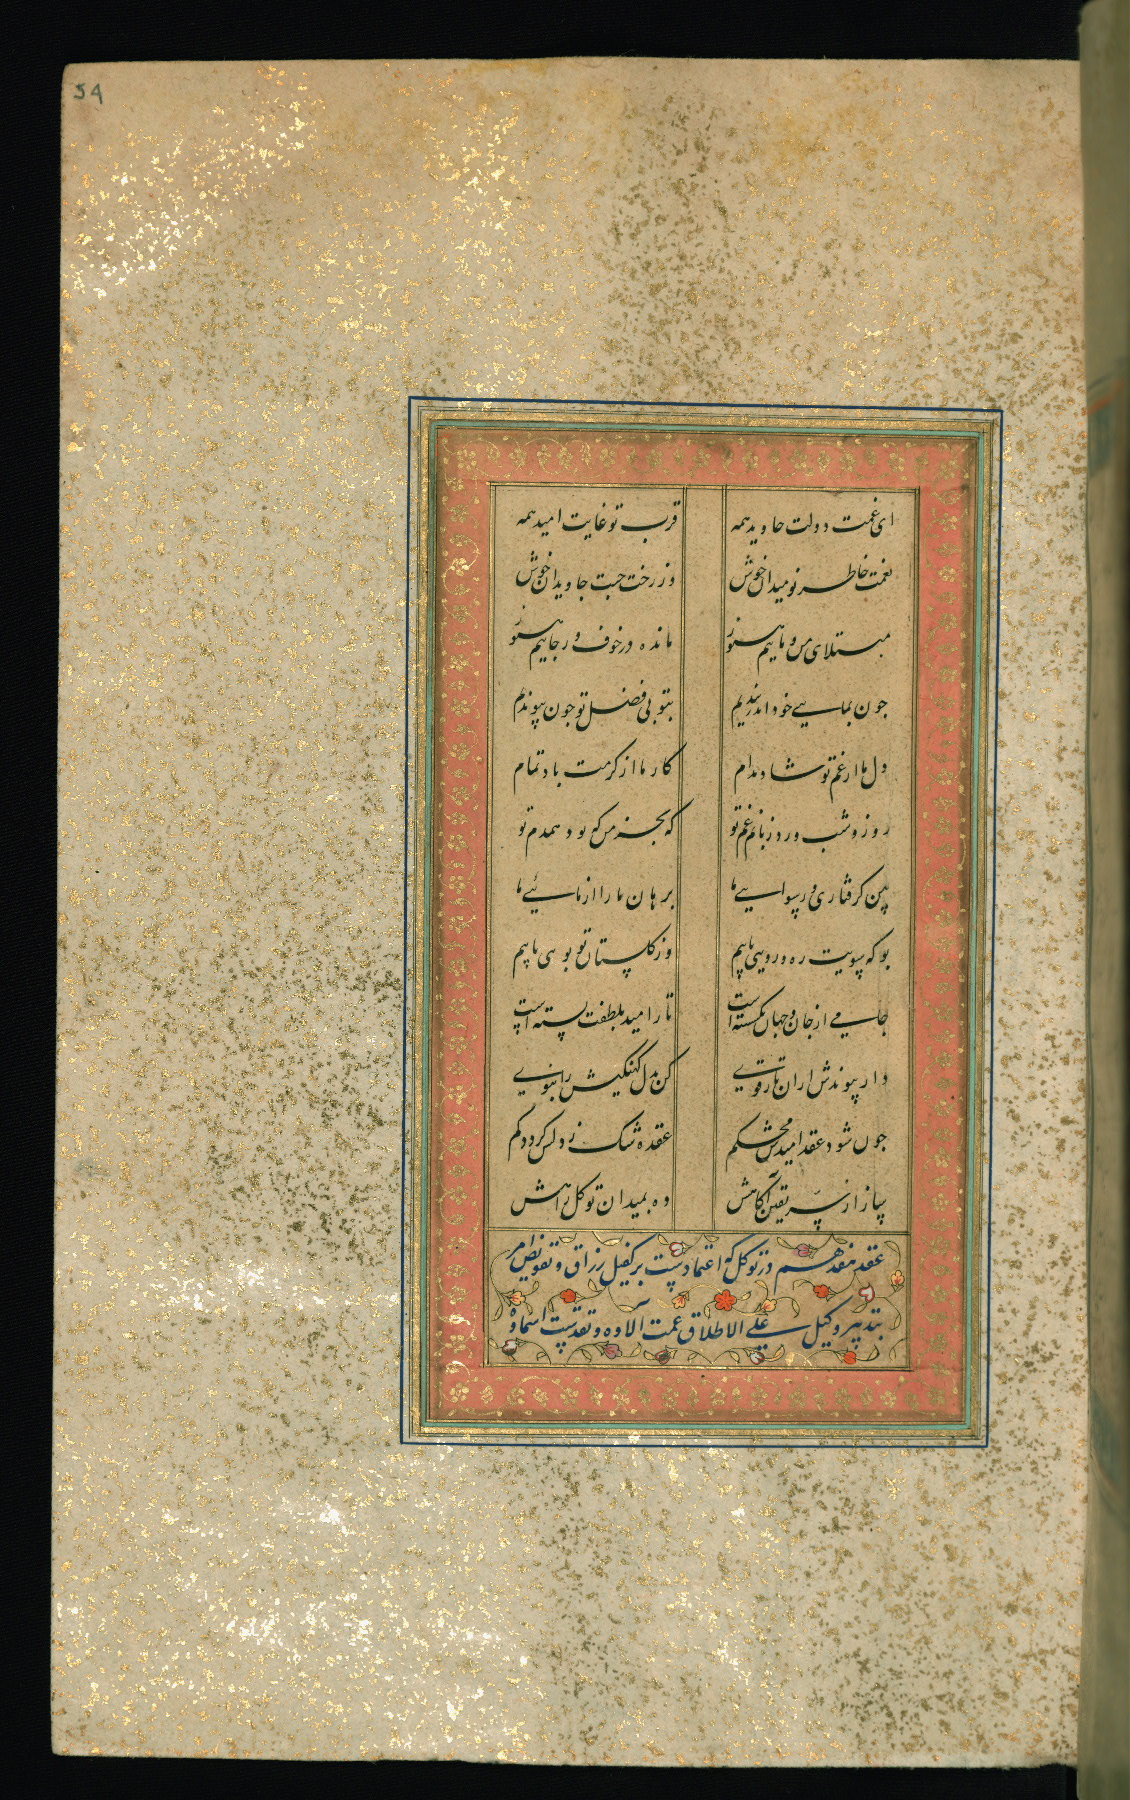 54
ای غمت دولت جاوید همه قرب تو غایت امید همه
نغمت خاطر نومیدان خوش وز رخت جنت جاویدان خوش
مبتلای من و ماییم هنوز مانده در خوف و رجاییم هنوز
چون بمایی خود اندر بندیم بتو بی فضل تو چون پیوندیم
دل ما از غم تو شاد مدام کار ما از کرمت باد تمام
روز و شب ورد زبانم غم تو که بجز من که بود همدم تو
بین گرفتاری و رسوایی ما برهان ما را از مایی ما
بو که سویت ره و رویی یابیم وز گلستان تو بویی یابیم
جامی از جان و جهان بگسسته است تار امید بلطفت بسته است
دار پیوندش از آن تار قوی کن بدل کهنگیش را بنوی
چون شود عقد امیدش محکم عقده شک ز دلش گردد کم
ساز از سر یقین آگاهش ده بمیدان توکل راهش
عقد هفدهم در توکل که اعتماد است بر کفیل رزاق و تفویض امر
بتدبیر وکیل علی الاطلاق عمت آلاوه و تقدست اسماوه